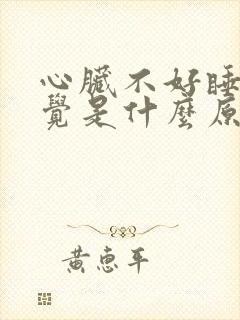 心臟不好睡
覺是什麼原
黃惠平